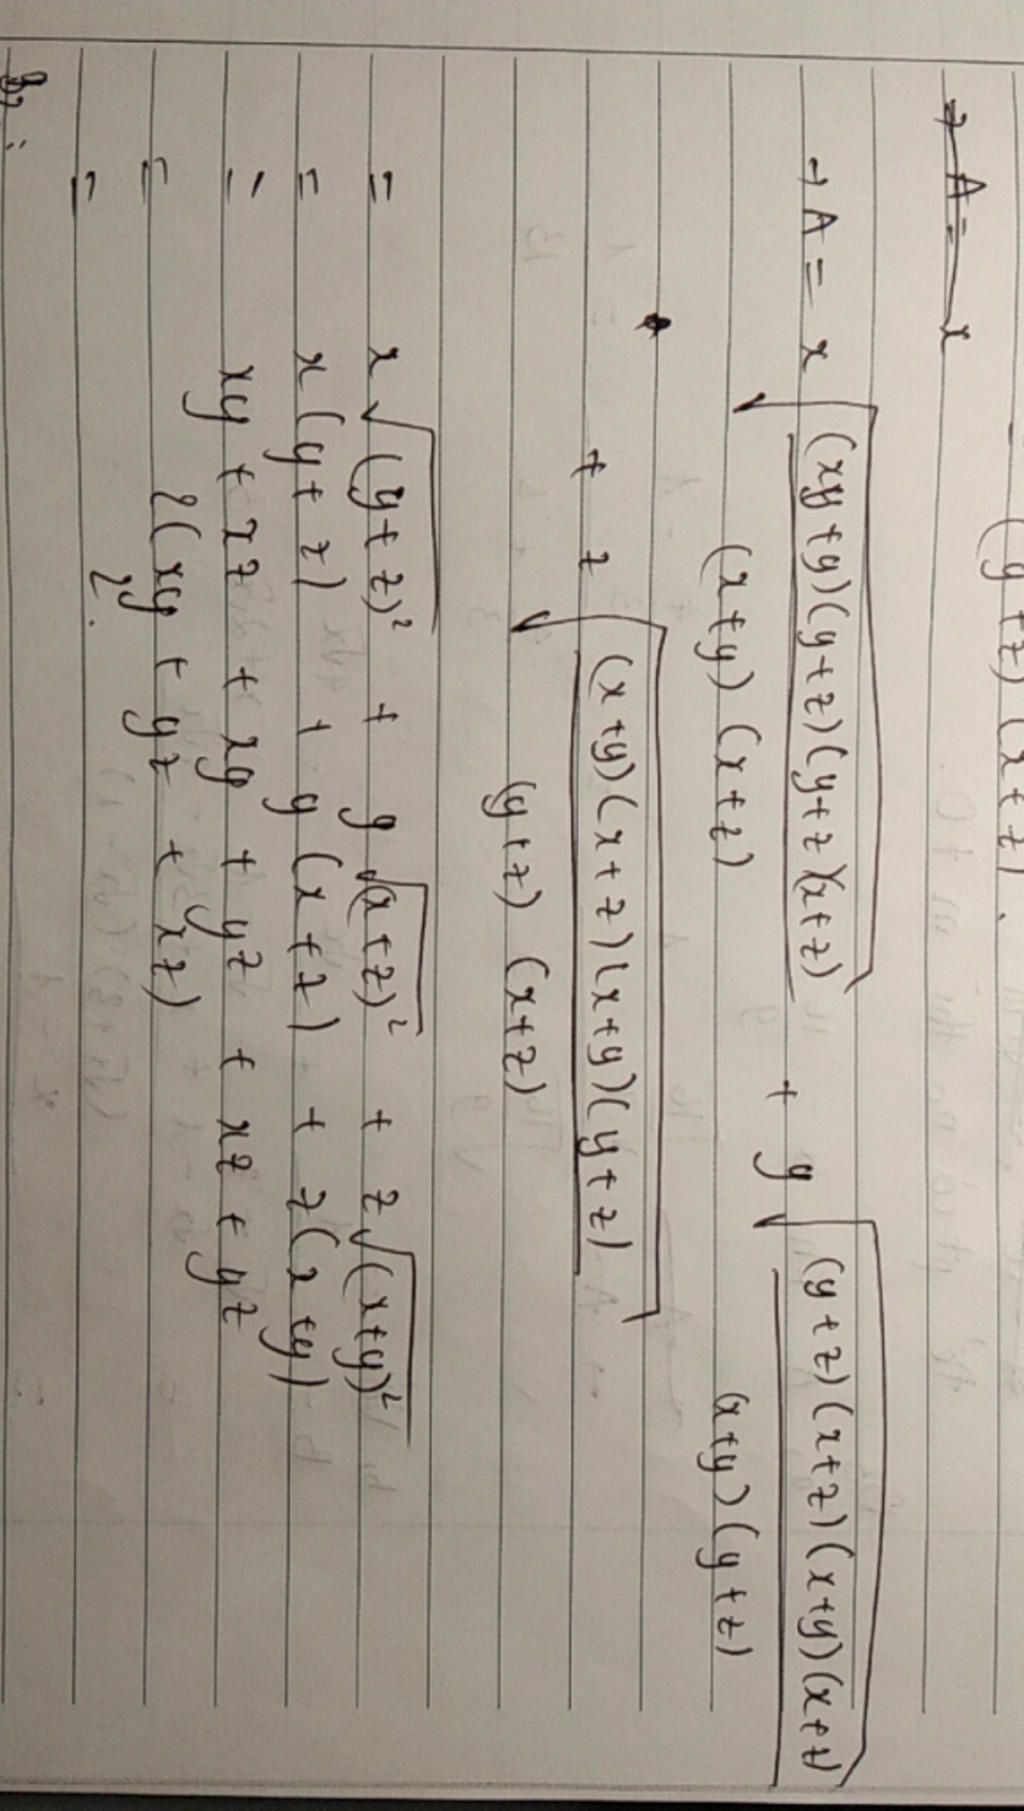 (y+z)(x+z).
→ A = x
→ A = x √((xy+y)(y+z)(y+z)(x+z) / (x+y)(x+z)) + y √((y+z)(x+z)(x+y)(x+z) / (x+y)(y+z))
+ z √((x+y)(x+z)(x+y)(y+z) / (y+z)(x+z))
= x √(y+z)² + y √(x+z)² + z √(x+y)²
= x(y+z) + y(x+z) + z(x+y)
= xy + xz + xy + yz + xz + yz
= 2(xy + yz + xz)
= 2.